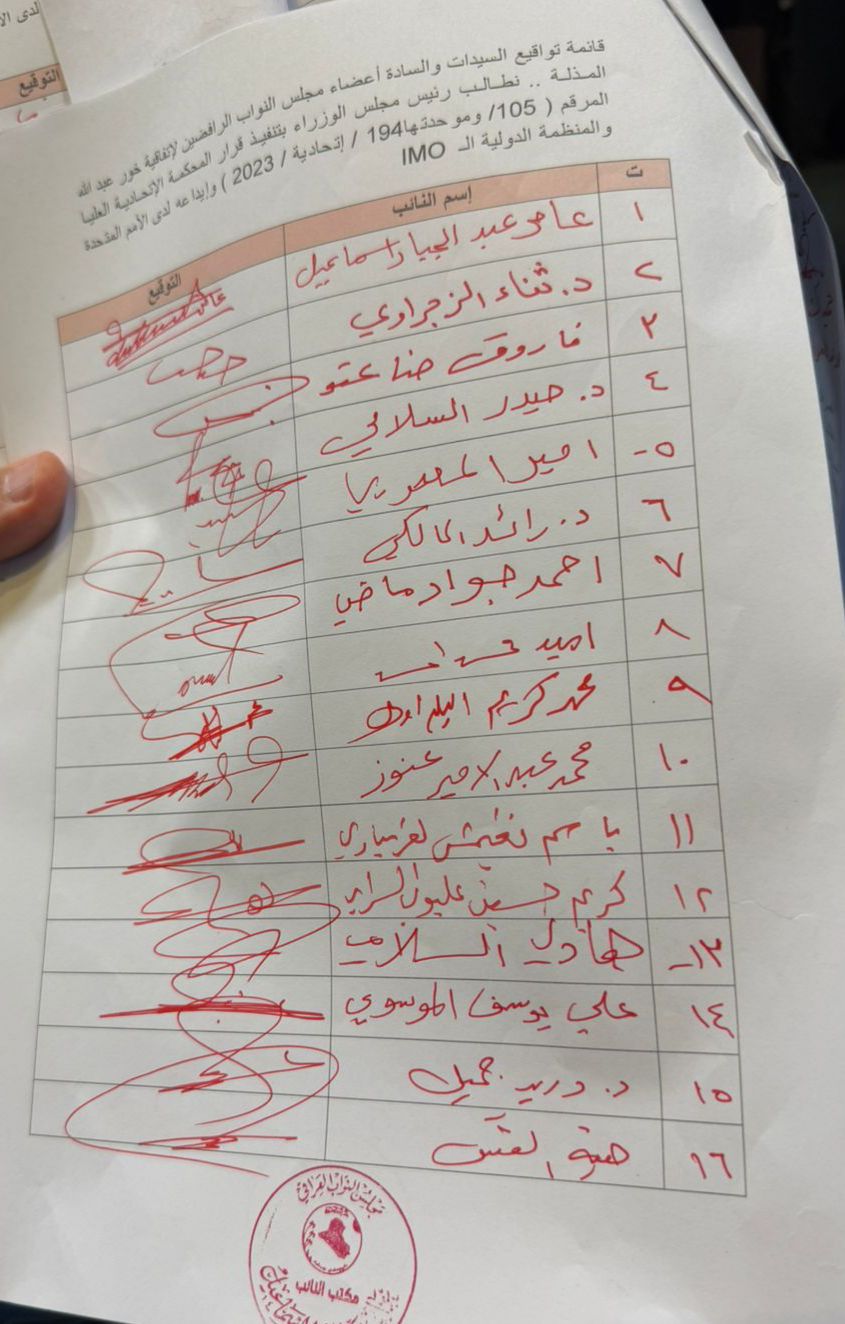 لدى الأ
التوقيع
قائمة تواقيع السيدات والسادة أعضاء مجلس النواب الرافضين لإتفاقية خور عبد الله
المذلة .. نطالب رئيس مجلس الوزراء بتنفيذ قرار المحكمة الإتحادية العليا
المرقم ( 105/ وموحدتها194 / إتحادية / 2023 ) وإيداعه لدى الأمم المتحدة
والمنظمة الدولية الـ IMO
ت إسم النائب التوقيع
١ عامر عبد الجبار اسماعيل
٢ د. ثناء الزجراوي
٣ فاروق حنا عتو
٤ د. حيدر السلامي
٥- امير المعموري
٦ د. رائد المالكي
٧ احمد جواد ماضي
٨ امير
٩ محمد كريم البلداوي
١٠ محمد عبد الامير عنوز
١١ باسم نغيمش الغريباوي
١٢ كريم حسين عليوي السراي
١٣- هادي السلامي
١٤ علي يوسف الموسوي
١٥ د. دريد جميل
١٦
مجلس النواب العراقي
مكتب النائب